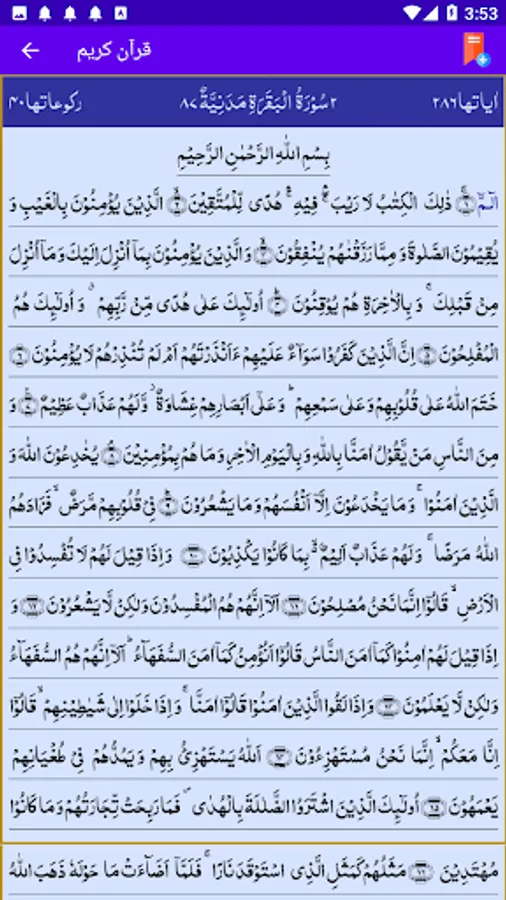 3:53
قرآن کریم
اٰیاتها ٢٨٦ ٢ سُوْرَةُ الْبَقَرَةِ مَدَنِيَّةٌ ٨٧ رکوعاتها ٤٠
بِسْمِ اللّٰهِ الرَّحْمٰنِ الرَّحِيْمِ
الٓمّٓ ۝١ۚ ذٰلِكَ الْكِتٰبُ لَا رَيْبَ ۛۚ فِيْهِ ۛۚ هُدًى لِّلْمُتَّقِيْنَ ۝٢ۙ الَّذِيْنَ يُؤْمِنُوْنَ بِالْغَيْبِ وَ
يُقِيْمُوْنَ الصَّلٰوةَ وَ مِمَّا رَزَقْنٰهُمْ يُنْفِقُوْنَ ۝٣ۙ وَالَّذِيْنَ يُؤْمِنُوْنَ بِمَاۤ اُنْزِلَ اِلَيْكَ وَ مَاۤ اُنْزِلَ
مِنْ قَبْلِكَ ۚ وَ بِالْاٰخِرَةِ هُمْ يُوْقِنُوْنَ ۝٤ؕ اُولٰٓئِكَ عَلٰى هُدًى مِّنْ رَّبِّهِمْ ۗ وَ اُولٰٓئِكَ هُمُ
الْمُفْلِحُوْنَ ۝٥ اِنَّ الَّذِيْنَ كَفَرُوْا سَوَآءٌ عَلَيْهِمْ ءَاَنْذَرْتَهُمْ اَمْ لَمْ تُنْذِرْهُمْ لَا يُؤْمِنُوْنَ ۝٦
خَتَمَ اللّٰهُ عَلٰى قُلُوْبِهِمْ وَ عَلٰى سَمْعِهِمْ ؕ وَ عَلٰۤى اَبْصَارِهِمْ غِشَاوَةٌ ؗ وَّ لَهُمْ عَذَابٌ عَظِيْمٌ ۝٧ۧ وَ
مِنَ النَّاسِ مَنْ يَّقُوْلُ اٰمَنَّا بِاللّٰهِ وَ بِالْيَوْمِ الْاٰخِرِ وَ مَا هُمْ بِمُؤْمِنِيْنَ ۝٨ۘ يُخٰدِعُوْنَ اللّٰهَ وَ
الَّذِيْنَ اٰمَنُوْا ۚ وَ مَا يَخْدَعُوْنَ اِلَّاۤ اَنْفُسَهُمْ وَ مَا يَشْعُرُوْنَ ۝٩ؕ فِيْ قُلُوْبِهِمْ مَّرَضٌ ۙ فَزَادَهُمُ
اللّٰهُ مَرَضًا ۚ وَ لَهُمْ عَذَابٌ اَلِيْمٌ ۙ۬ بِمَا كَانُوْا يَكْذِبُوْنَ ۝١٠ وَ اِذَا قِيْلَ لَهُمْ لَا تُفْسِدُوْا فِي
الْاَرْضِ ۙ قَالُوْۤا اِنَّمَا نَحْنُ مُصْلِحُوْنَ ۝١١ اَلَاۤ اِنَّهُمْ هُمُ الْمُفْسِدُوْنَ وَ لٰكِنْ لَّا يَشْعُرُوْنَ ۝١٢ وَ
اِذَا قِيْلَ لَهُمْ اٰمِنُوْا كَمَاۤ اٰمَنَ النَّاسُ قَالُوْۤا اَنُؤْمِنُ كَمَاۤ اٰمَنَ السُّفَهَآءُ ؕ اَلَاۤ اِنَّهُمْ هُمُ السُّفَهَآءُ
وَ لٰكِنْ لَّا يَعْلَمُوْنَ ۝١٣ وَ اِذَا لَقُوا الَّذِيْنَ اٰمَنُوْا قَالُوْۤا اٰمَنَّا ۚ وَ اِذَا خَلَوْا اِلٰى شَيٰطِيْنِهِمْ ۙ قَالُوْۤا
اِنَّا مَعَكُمْ ۙ اِنَّمَا نَحْنُ مُسْتَهْزِءُوْنَ ۝١٤ اَللّٰهُ يَسْتَهْزِئُ بِهِمْ وَ يَمُدُّهُمْ فِيْ طُغْيَانِهِمْ
يَعْمَهُوْنَ ۝١٥ اُولٰٓئِكَ الَّذِيْنَ اشْتَرَوُا الضَّلٰلَةَ بِالْهُدٰى ۪ فَمَا رَبِحَتْ تِّجَارَتُهُمْ وَ مَا كَانُوْا
مُهْتَدِيْنَ ۝١٦ مَثَلُهُمْ كَمَثَلِ الَّذِي اسْتَوْقَدَ نَارًا ۚ فَلَمَّاۤ اَضَآءَتْ مَا حَوْلَهٗ ذَهَبَ اللّٰهُ